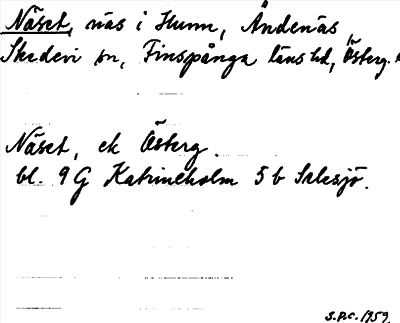 Näset, näs i Hunn, Ändenäs,
Skedevi sn, Finspånga läns hd, Österg.
Näset, ek Österg.
bl. 9 G Katrineholm 5 b
S.P.C. 1959.